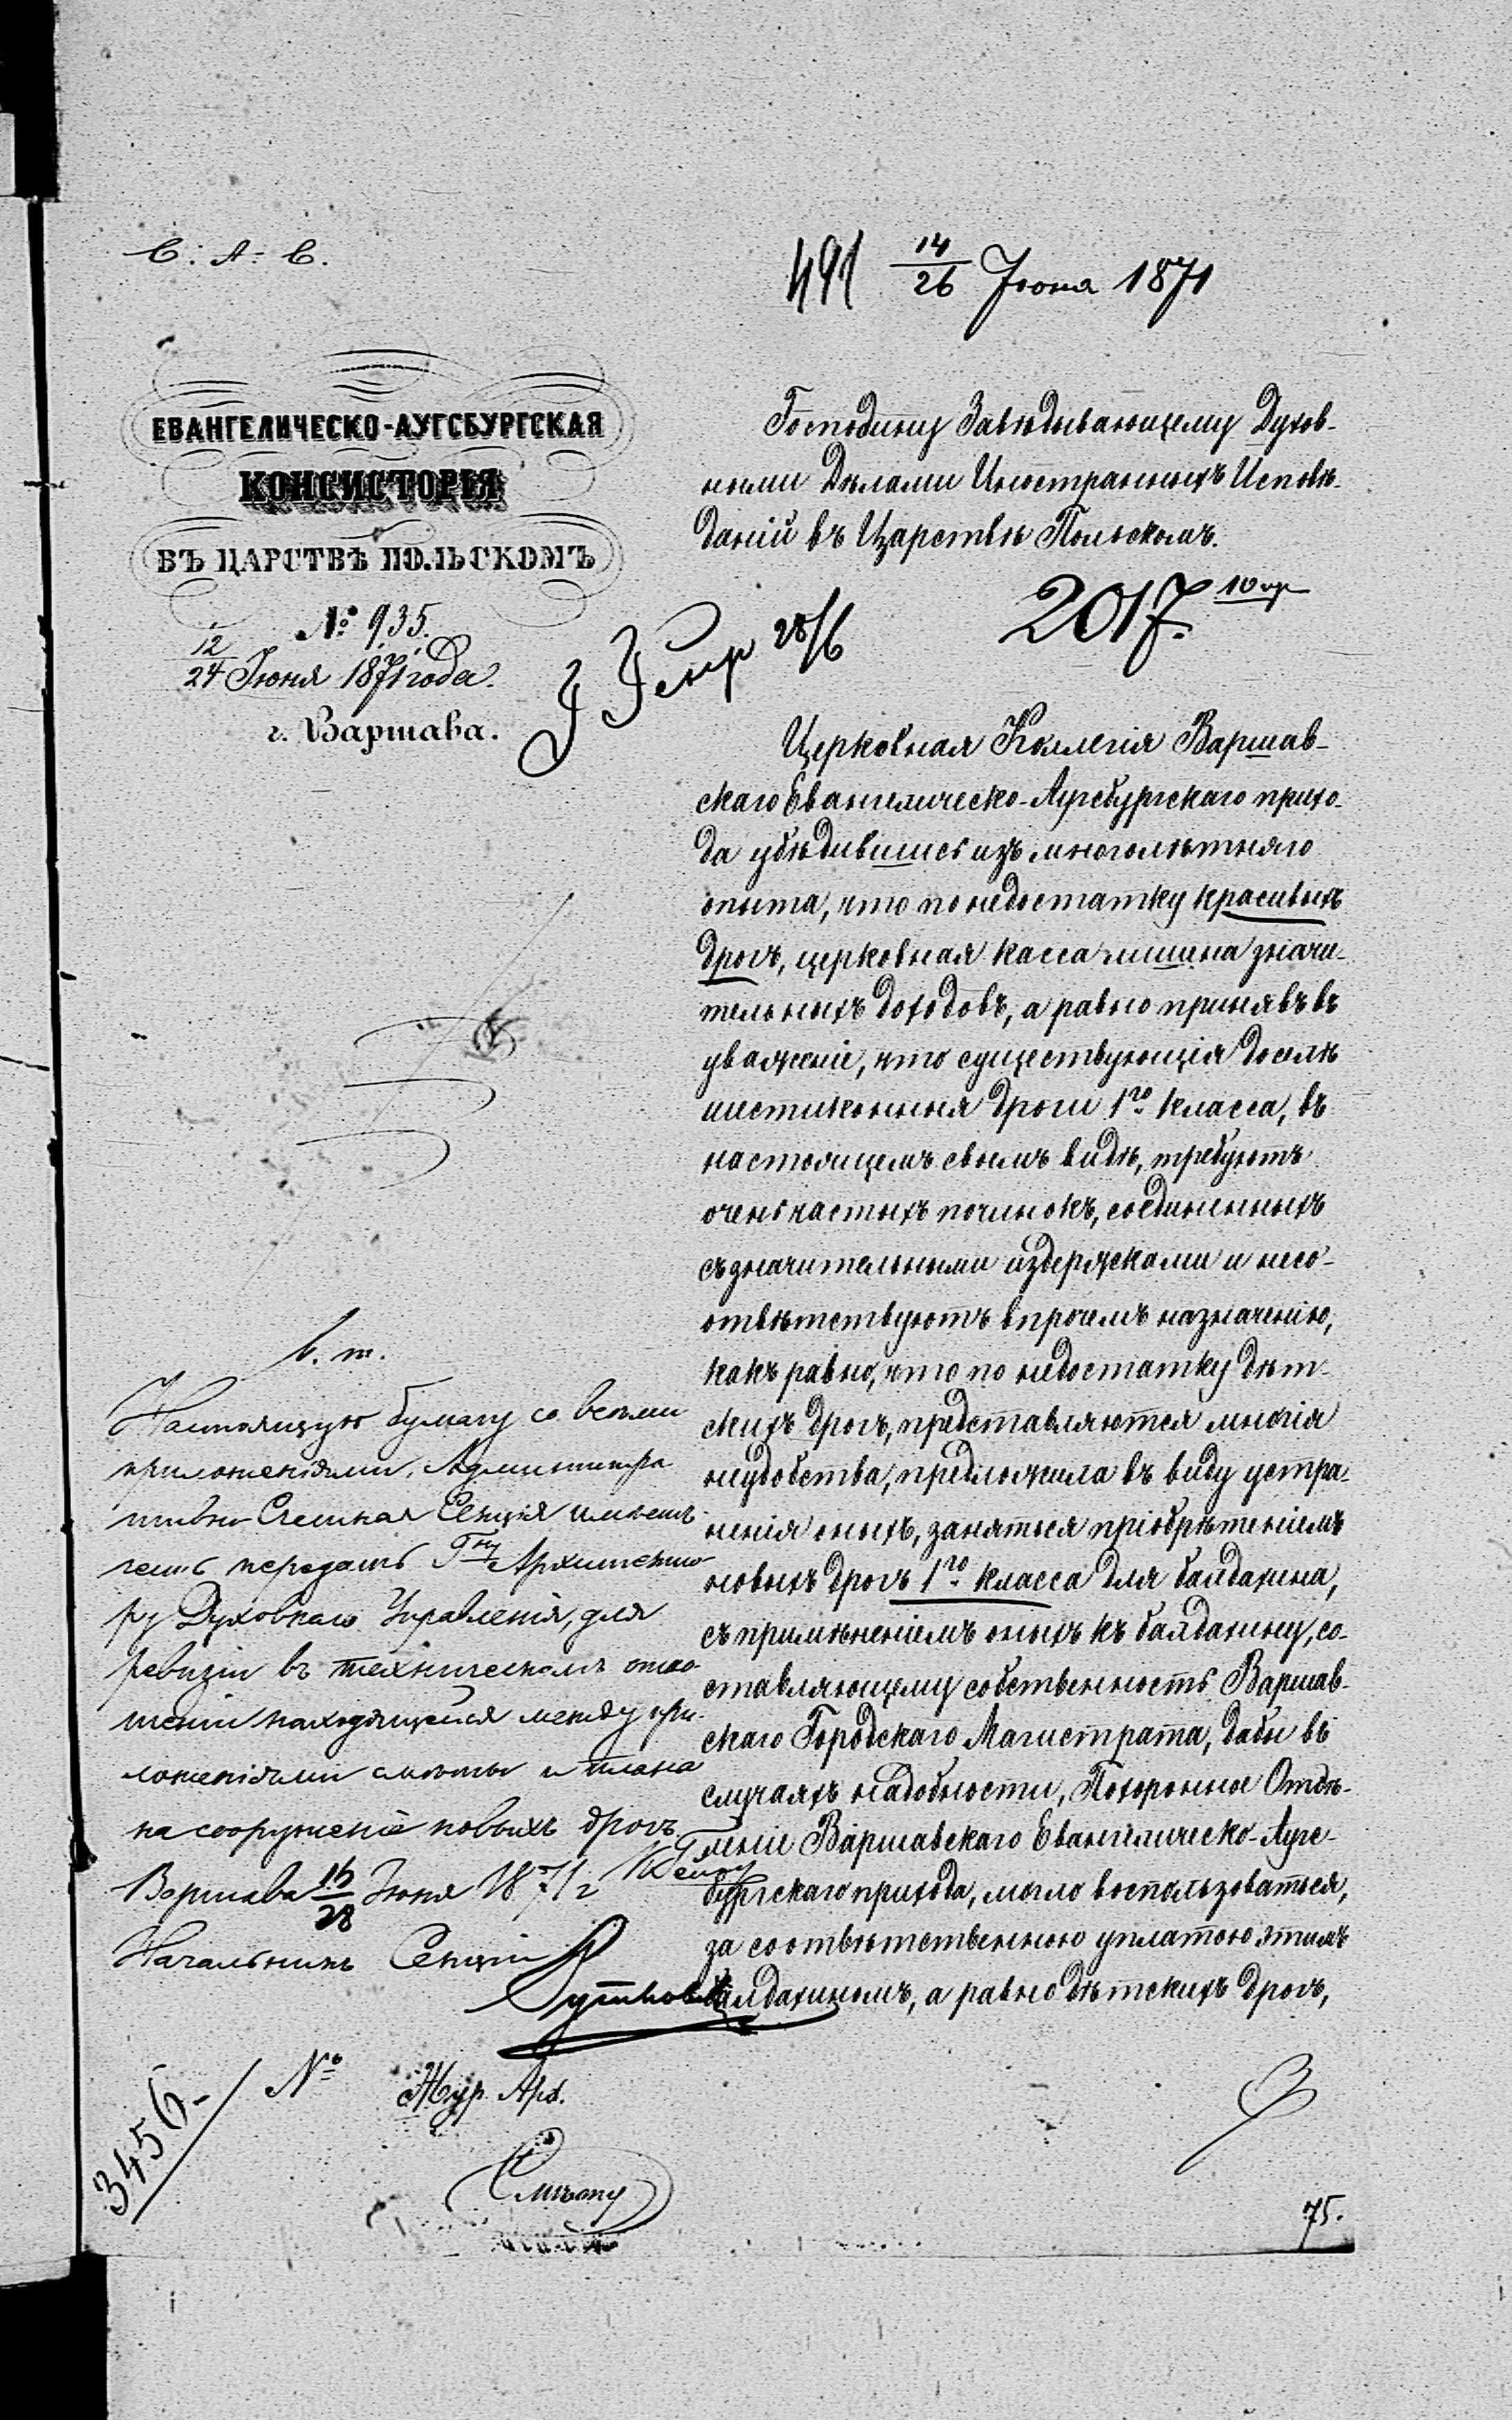 С: А: С.
491 14/26 Июня 1871
ЕВАНГЕЛИЧЕСКО-АУГСБУРГСКАЯ
КОНСИСТОРІЯ
ВЪ ЦАРСТВѢ ПОЛЬСКОМЪ
№ 935.
12/24 Июня 1871 года.
г. Варшава.
Господину Завѣдывающему Духов-
ными Дѣлами Иностранныхъ Исповѣ-
даній въ Царствѣ Польскомъ.
2017.
28/6
Церковная Коллегія Варшав-
скаго Евангелическо-Аугсбургскаго прихо-
да убѣдившись изъ многолѣтняго
опыта, что по недостатку красивыхъ
дрогъ, церковная касса лишена значи-
тельныхъ доходовъ, а равно принявъ въ
уваженіе, что существующія доселѣ
шестиконныя дроги 1го класса, въ
настоящемъ своемъ видѣ, требуютъ
очень частыхъ починокъ, соединенныхъ
съ значительными издержками и несо-
отвѣтствуютъ впрочемъ назначенію,
какъ равно, что по недостатку дѣт-
скихъ дрогъ, представляются многія
неудобства, предложила въ виду устра-
ненія оныхъ, заняться пріобрѣтеніемъ
новыхъ дрогъ 1го класса для балдахина,
съ примѣненіемъ оныхъ къ балдахину, со-
ставляющему собственность Варшав-
скаго Городскаго Магистрата, дабы въ
случаяхъ надобности, Похоронное Отдѣ-
леніе Варшавскаго Евангелическо-Аугс-
бургскаго прихода, могло воспользоваться,
за соотвѣтственною уплатою этимъ
балдахиномъ, а равно дѣтскихъ дрогъ,
в. т.
Настоящую бумагу со всѣми
приложеніями, Администра
тивно Счетная Секція имѣетъ
честь передать Гну Архитекто
ру Духовнаго Управленія, для
ревизіи въ техническомъ отно-
шеніи находящейся между при-
ложеніями смѣты и плана
на сооруженіе новыхъ дрогъ
Варшава 16/28 Июня 1871 г
Начальникъ Секціи
3456
№ Жур. Арх.
75.